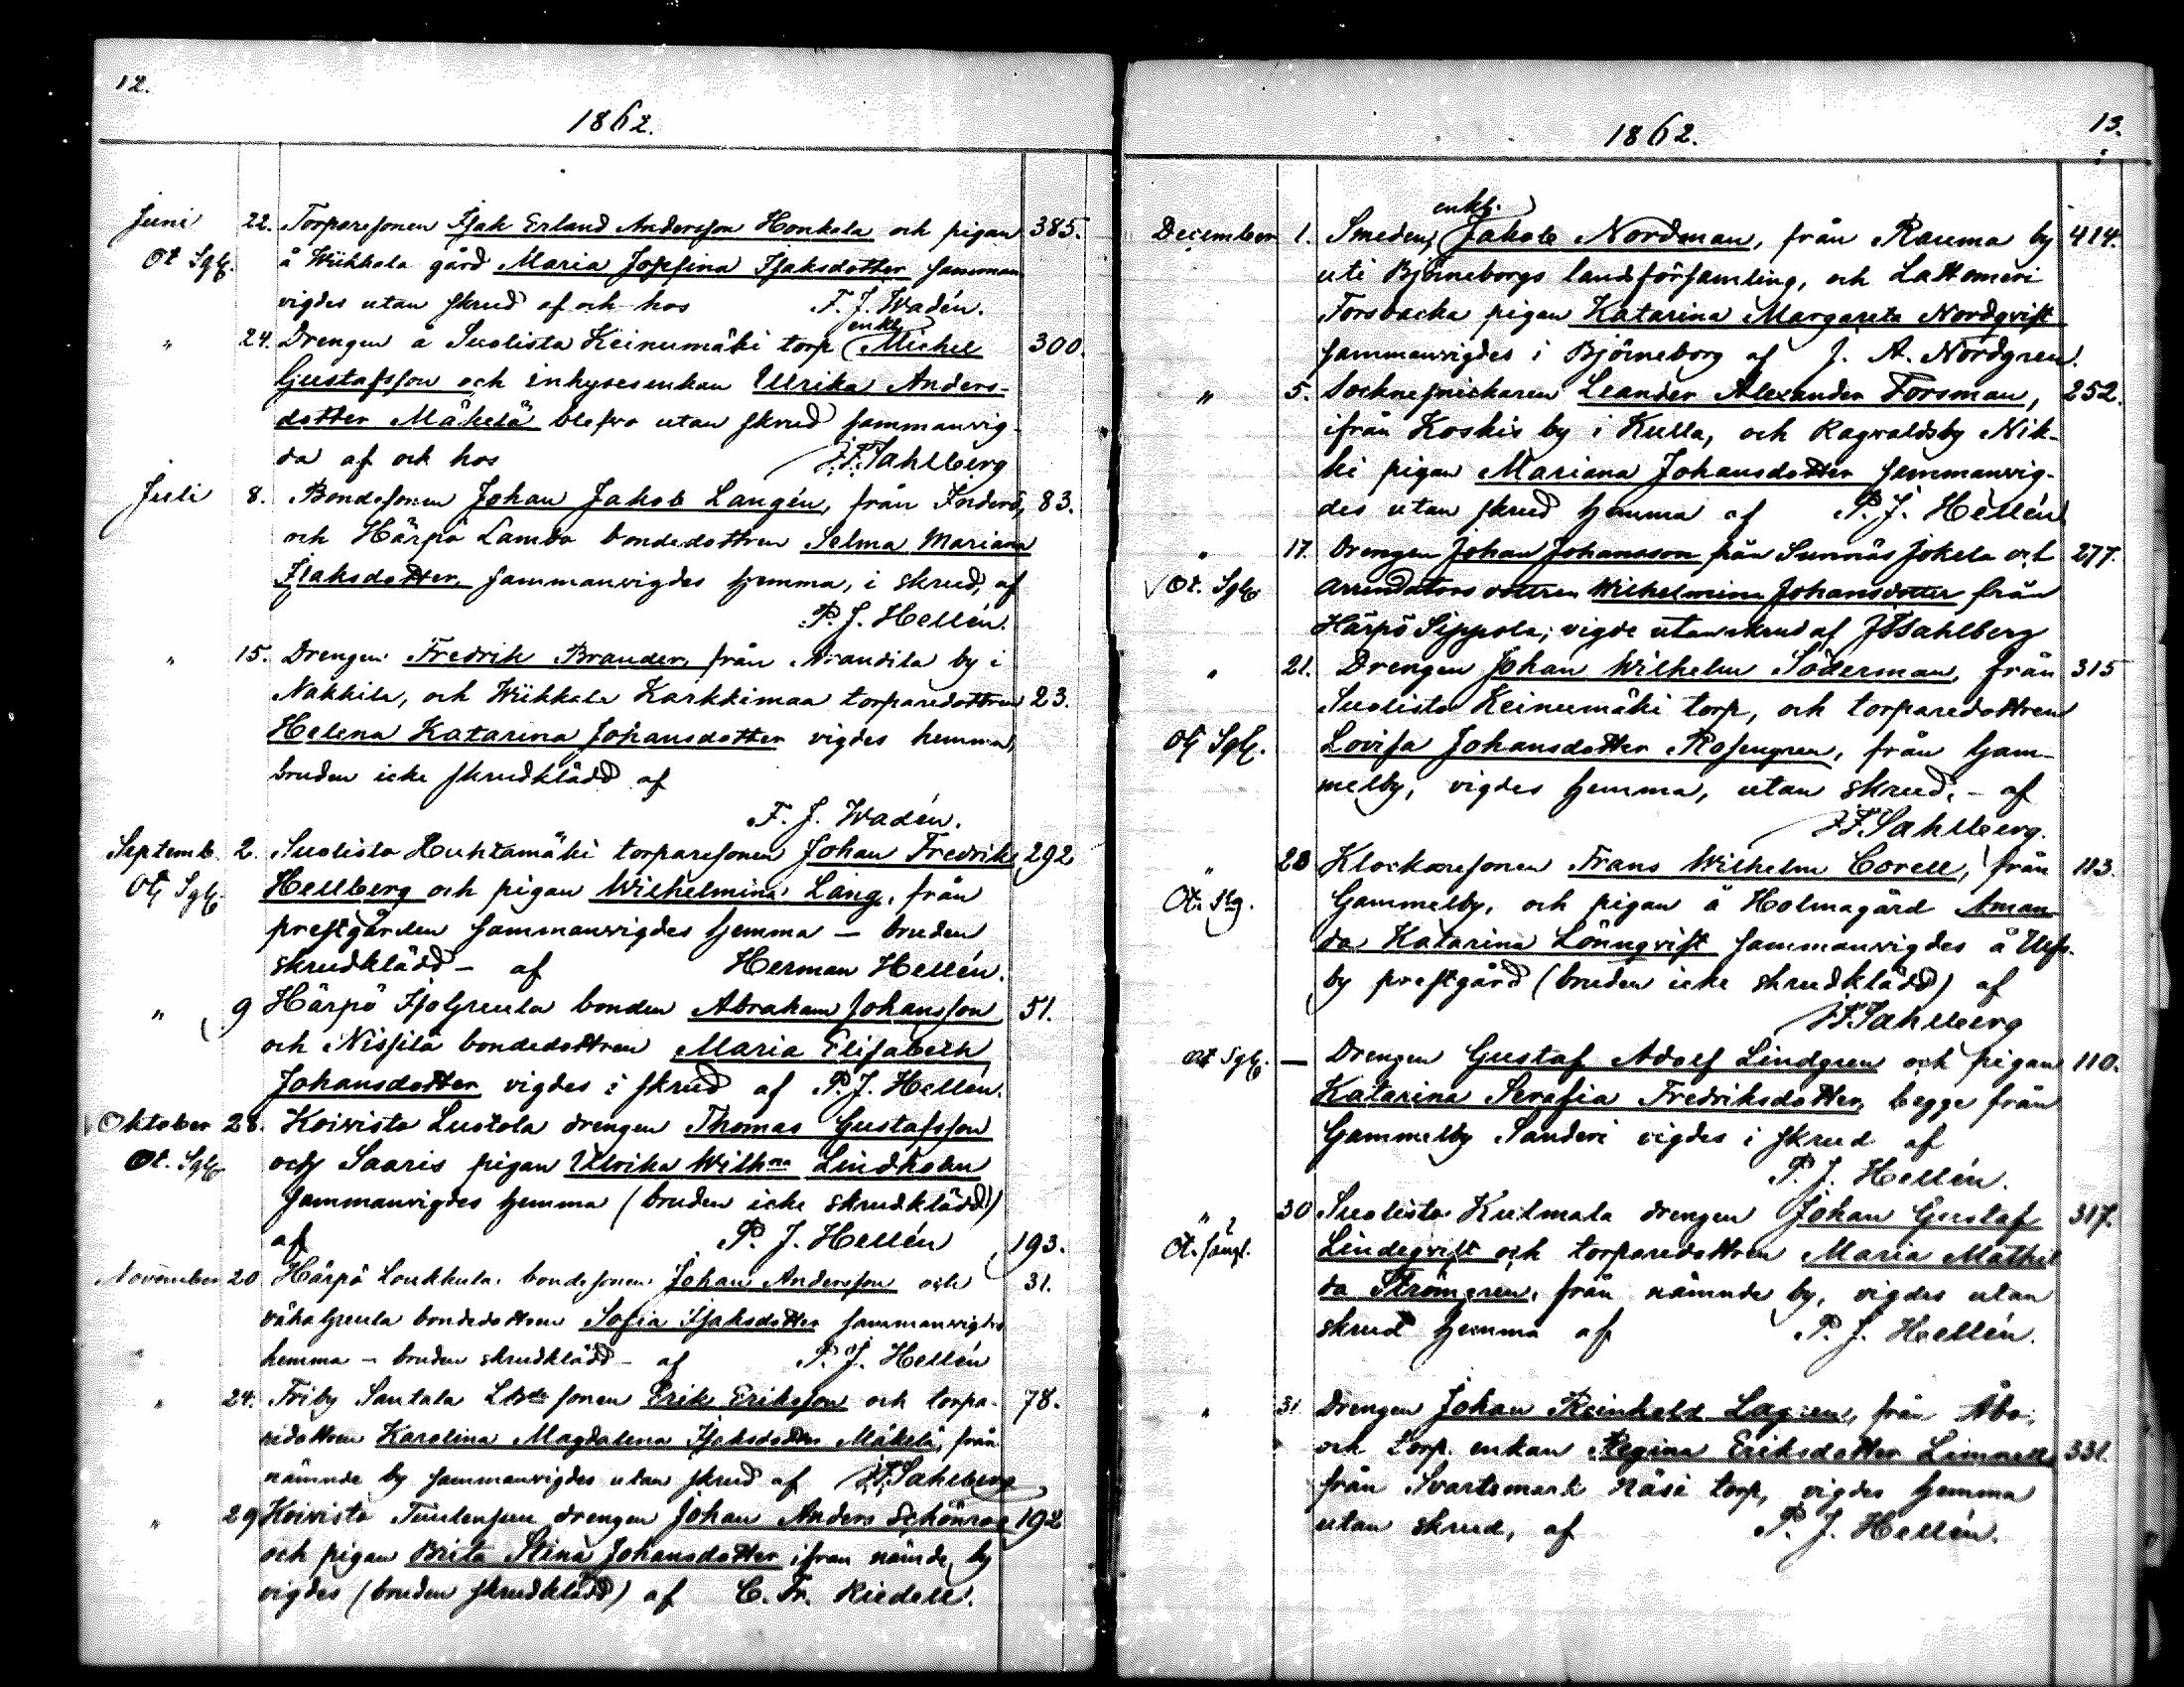 12.
1862.
Juni 22. Torparesonen Isak Erland Andersson Honkala och pigan 385.
Ot Sgl. å Wiikkala gård Maria Josefina Isaksdotter samman
vigdes utan skrud af och hos F. J. Wadén.
enkl.
" 24. Drengen å Suolista Keinumäki torp Michel 300.
Gustafsson och inhysesenkan Ulrika Anders-
dotter Mäkelä blefvo utan skrud sammanvig-
da af och hos J.F. Sahlberg
Juli 8. Bondesonen Johan Jakob Langén, från Inderö, 83.
och Härpö Lambo bondedottren Selma Mariana
Isaksdotter, sammanvigdes hemma, i skrud, af
P. J. Hellén.
" 15. Drengen Fredrik Brander, från Arandila by i
Nakkila, och Wiikkala Karkkimaa torparedottren 23.
Helena Katarina Johansdotter vigdes hemma,
bruden icke skrudklädd af
F. J. Wadén.
Septemb. 2. Suolisto Huhtamäki torparesonen Johan Fredrik 292
Ot Sgl. Hellberg och pigan Wilhelmina Lang, från
prestgården sammanvigdes hemma – bruden
skrudklädd – af Herman Hellén.
" 9 Härpö Isogreula bonden Abraham Johansson 51.
och Nissilä bondedottren Maria Elisabeth
Johansdotter vigdes i skrud af P. J. Hellén.
Oktober 28. Koivisto Lustola drengen Thomas Gustafsson
Ot. Sgl. och Saaris pigan Ulrika Wilhna Lindholm
sammanvigdes hemma (bruden icke skrudklädd)
af P. J. Hellén 193.
November 20 Härpö Loukkula bondesonen Johan Andersson och 31.
vähaGreula bondedottren Sofia Isaksdotter sammanvigdes
hemma – bruden skrudklädd – af P. J. Hellén
" 24. Friby Santala sonen Erik Eriksson och torpa- 78.
redottren Karolina Magdalena Isaksdotter Mäkelä, från
nämnde by sammanvigdes utan skrud af J.F. Sahlberg
" 29 Koivisto Tuulensuu drengen Johan Anders Schönroos 192
och pigan Brita Stina Johansdotter ifrån nämde by
vigdes (bruden skrudklädd) af C. Fr. Riedell.
13.
1862.
enkl.
December 1. Smeden, Jakob Nordman, från Rauma by 414.
uti Björneborgs landsförsamling, och Lattomeri
Forsbacka pigan Katarina Margareta Nordqvist
sammanvigdes i Björneborg af J. A. Nordgren.
" 5. Socknesnickaren Leander Alexander Forsman, 252.
ifrån Koskis by i Kulla, och Ragvaldsby Nik-
ki pigan Mariana Johansdotter sammanvig-
des utan skrud hemma af P. J. Hellén
" 17. Drengen Johan Johansson från Sunnäs Jokela och 277.
Ot. Sgl. arrendators dottren Wilhelmina Johansdotter från
Härpö Sippola; vigde utan skrud af J F Sahlberg
" 21. Drengen Johan Wilhelm Söderman, från 315
Suolisto Keinumäki torp, och torparedottren
Ot Sgl. Lovisa Johansdotter Rosengren, från Gam-
melby, vigdes hemma, utan skrud, – af
J.F. Sahlberg.
" 28 Klockaresonen Frans Wilhelm Corell, från 113.
Ot. Slg. Gammelby, och pigan å Holmagård Aman-
da Katarina Lönnqvist sammanvigdes å Ulfs-
by prestgård (bruden icke skrudklädd) af
J.F. Sahlberg
Ot Sgl. — Drengen Gustaf Adolf Lindgren och pigan 110.
Katarina Serafia Fredriksdotter, begge från
Gammelby Sanderi vigdes i skrud af
P. J. Hellén.
" 30 Suolisto Kulmala drengen Johan Gustaf 317.
Ot. Sängl. Lindeqvist och torparedottren Maria Mathil
da Strömgren, från nämnde by, vigdes utan
skrud hemma af P. J. Hellén.
" 31 Drengen Johan Reinhold Lagren, från Åbo,
och torp. enkan Regina Eriksdotter Limnell 331.
från Svartsmark Näsi torp, vigdes hemma
utan skrud, af P. J. Hellén.